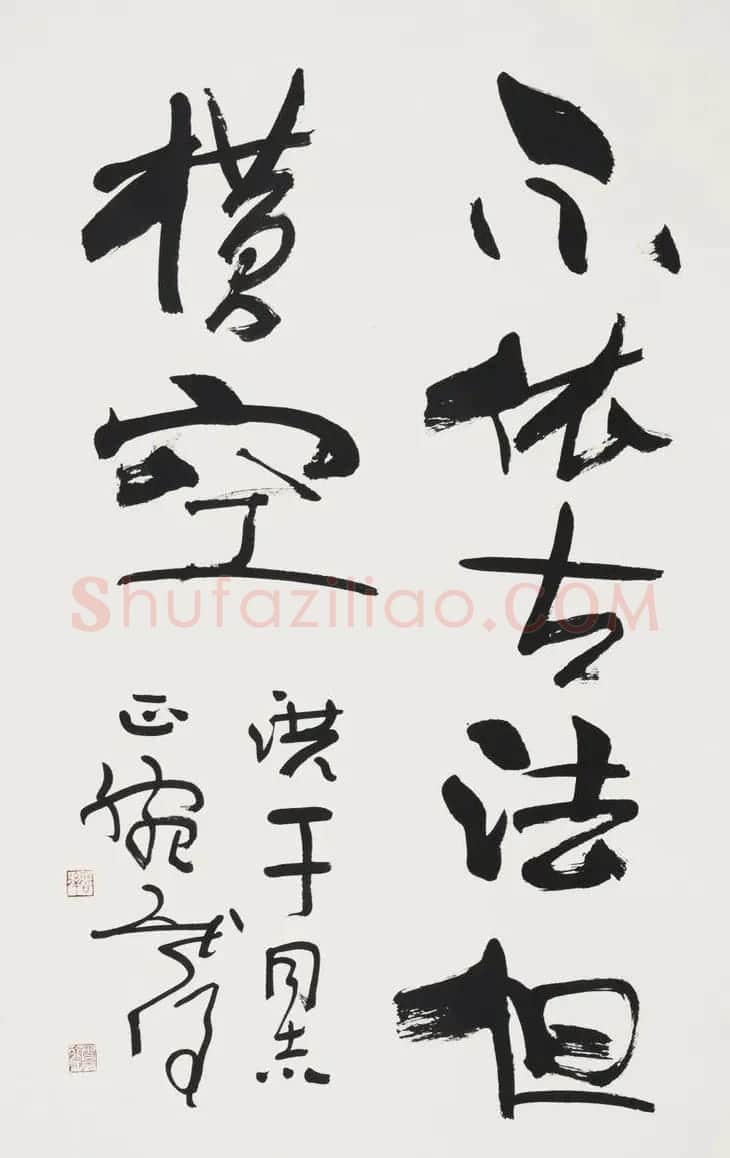 不依古法但
横空
洪于同志
正
Shufaziliao.COM